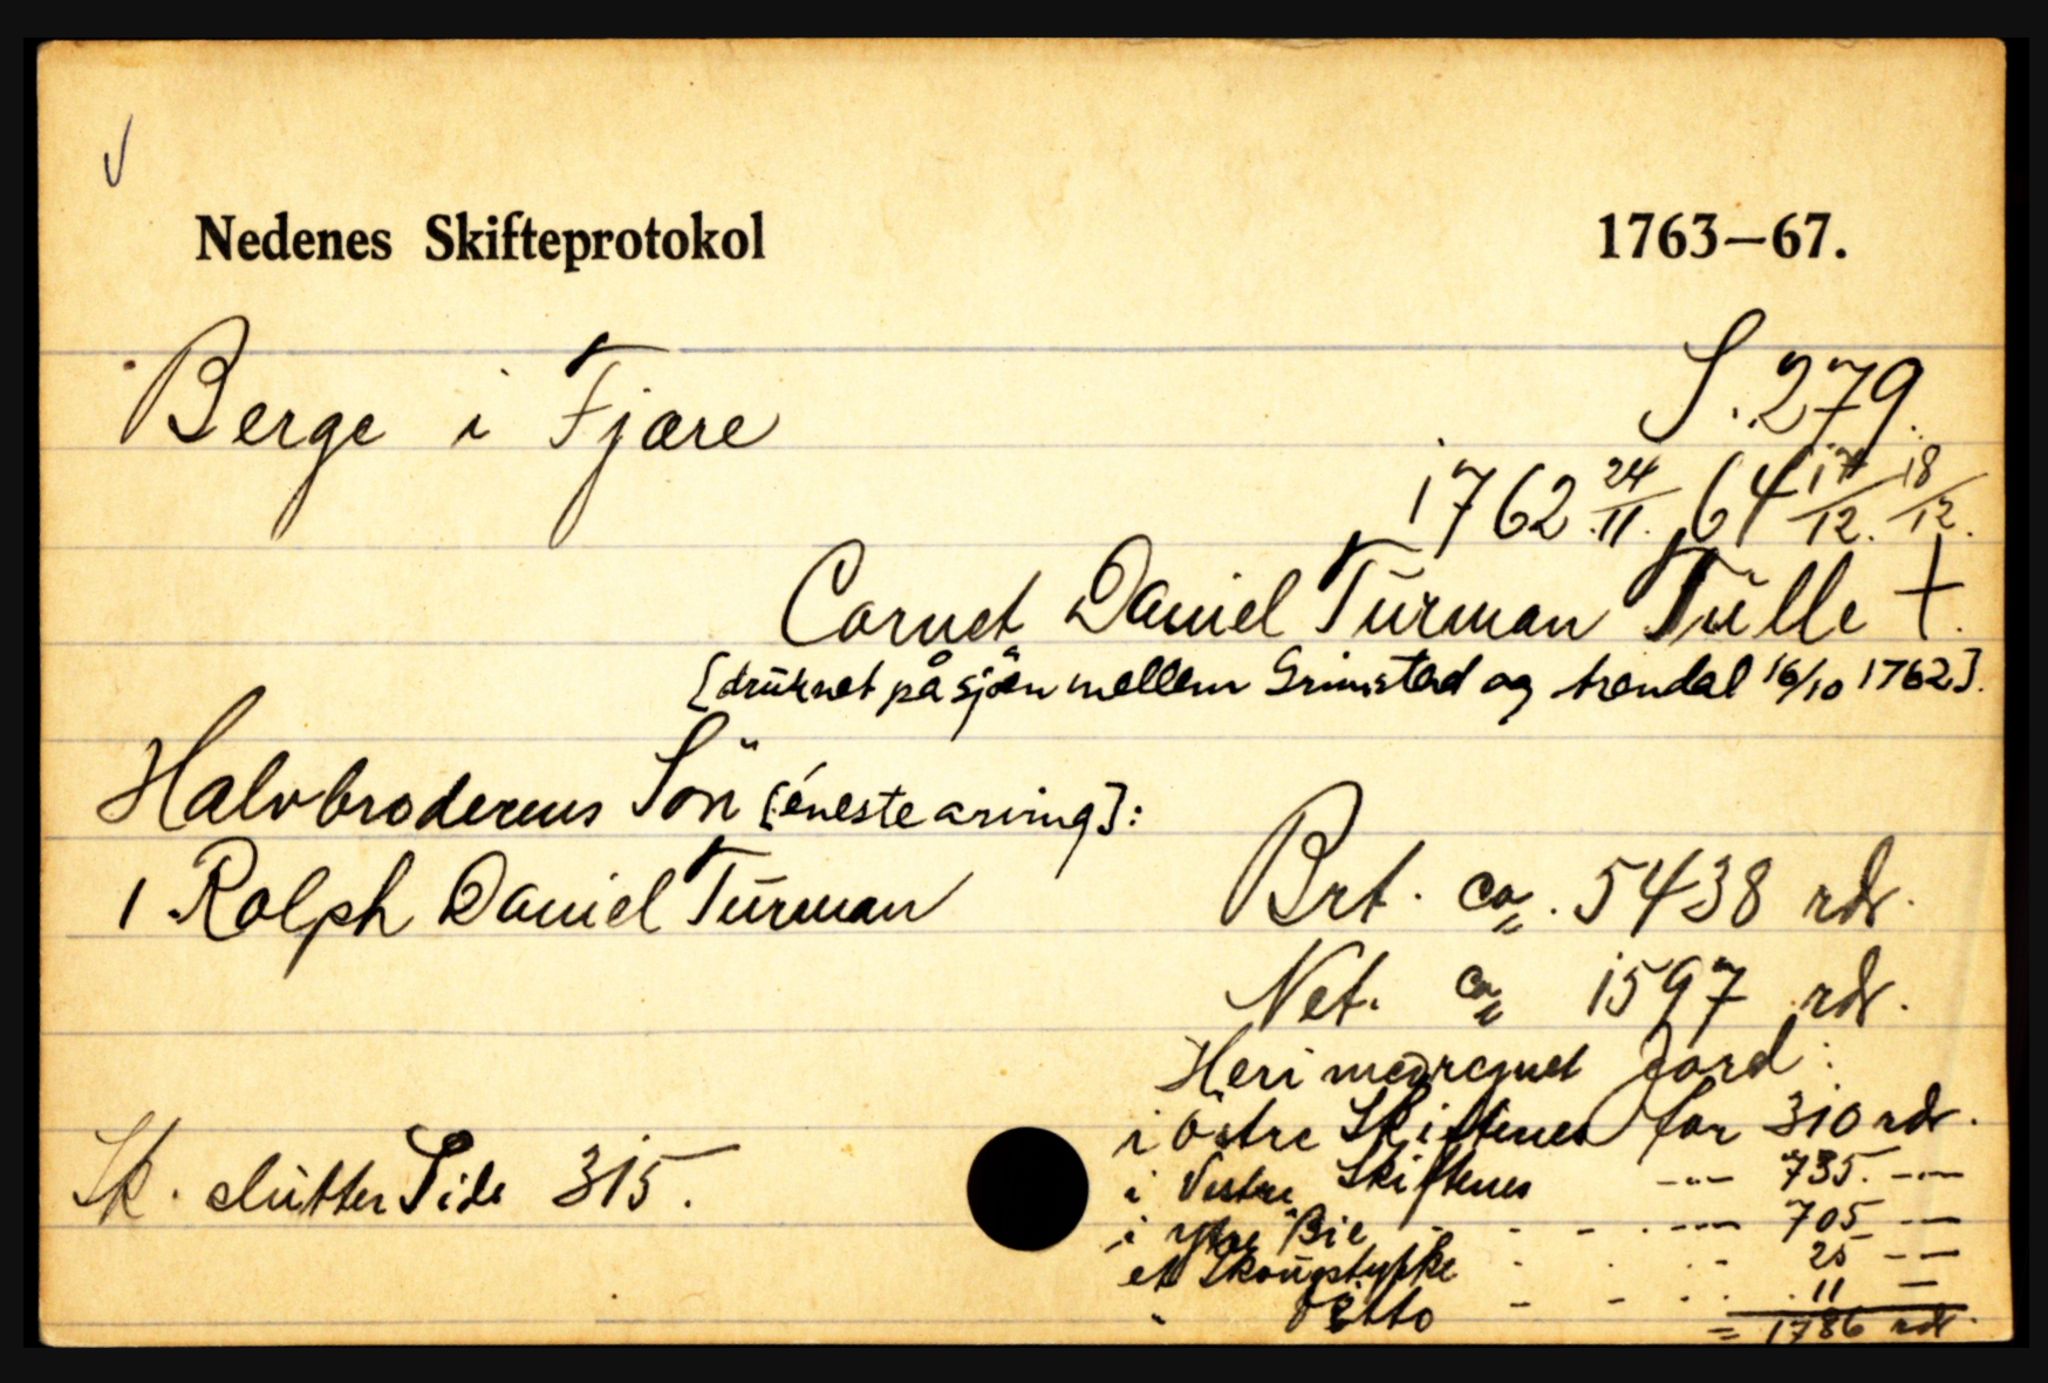 Nedenes Skifteprotokol 1763–67.
Berge i Fjære S. 279.
1762 24/11. 64 17/12. 18/12.
Cornet Daniel Tūrman Tūlle †.
[drūknet på sjöen mellem Grimstad og Arendal 16/10 1762].
Halvbroderens Sön [éneste arving]:
1 Rolph Daniel Tūrman
Brt. ca. 5438 rdr.
Net. ca 1597 rdr.
Heri medregnet Jord:
i östre Skiftenes for 310 rdr.
i Vestre Skiftenes -"- 735. -"-
i ytre Bie - - - -"- 705 -"-
et Skoūgstykke - - - 25 -"-
" Ditto - - - 11 -
= 1786 rdr.
Sk. slūtter Side 315.